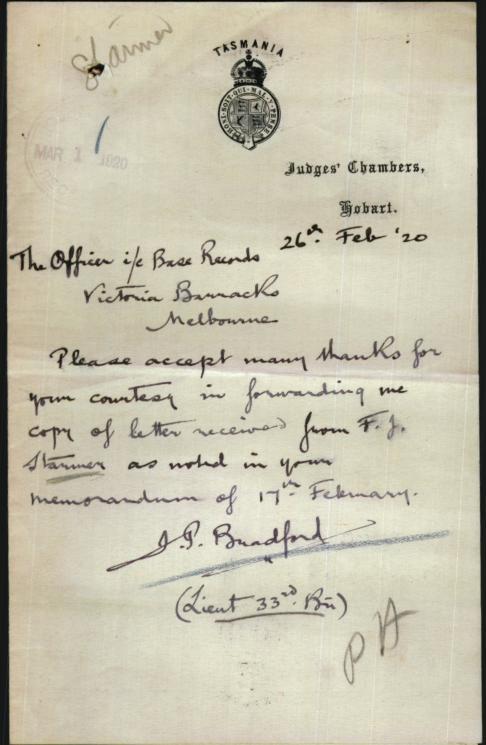 Starmer
TASMANIA
HONI·SOIT·QUI·MAL·Y·PENSE
MAR 1 1920
Judges' Chambers,
Hobart.
26th Feb '20
The Officer i/c Base Records
Victoria Barracks
Melbourne
Please accept many thanks for
your courtesy in forwarding me
copy of letter received from F. J.
Starmer as noted in your
memorandum of 17th February.
J. P. Bradford
(Lieut 33rd. Bn)
P A